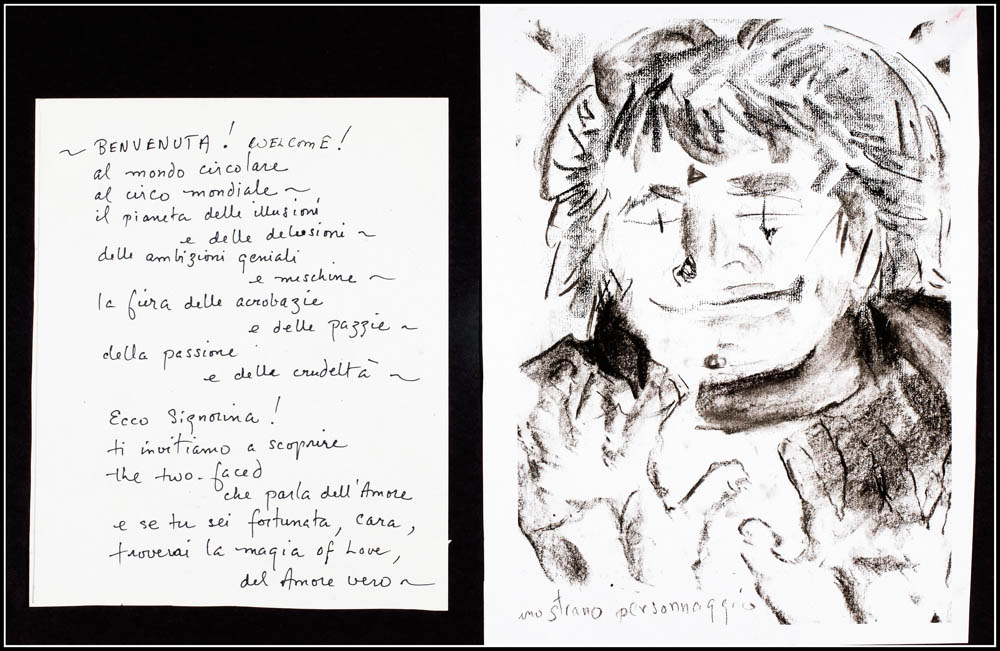 ~ BENVENUTA! WELCOME!
al mondo circolare
al circo mondiale ~
il pianeta delle illusioni
e delle delusioni ~
delle ambizioni geniali
e meschine ~
la fiera delle acrobazie
e delle pazzie ~
della passione
e della crudeltà ~
Ecco Signorina!
ti invitiamo a scoprire
the two-faced
che parla dell'Amore
e se tu sei fortunata, cara,
troverai la magia of Love,
del Amore vero ~
uno strano personnaggio